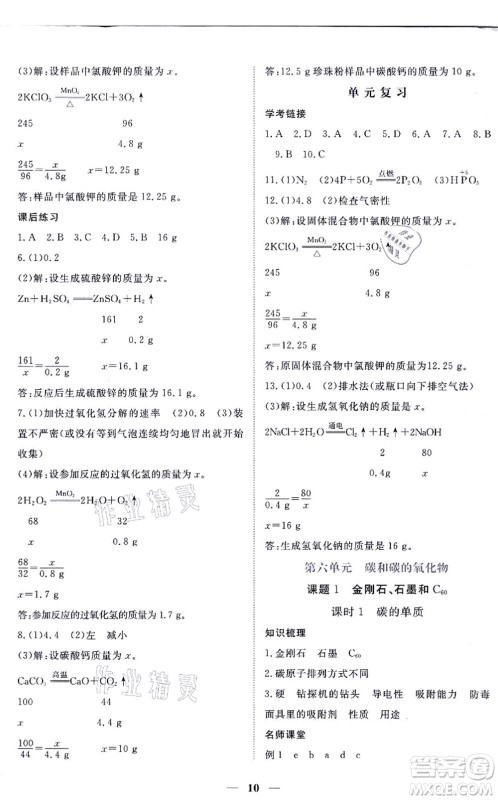 (3)解：设样品中氯酸钾的质量为 x。
2KClO₃ =MnO₂/△= 2KCl+3O₂↑
245 96
x 4.8 g
245/96=x/4.8g x=12.25 g
答：样品中氯酸钾的质量是12.25 g。
课后练习
1. A 2. B 3. A 4. B 5. 16 g
6.(1)0.2
(2)解：设生成硫酸锌的质量为 x。
Zn+H₂SO₄══ZnSO₄+H₂↑
161 2
x 0.2 g
161/x=2/0.2 g x=16.1 g
答：反应后生成硫酸锌的质量为 16.1 g。
7.(1)加快过氧化氢分解的速率 (2)0.8 (3)装
置不严密(或为了等到气泡连续均匀地冒出才开始
收集)
(4)解：设参加反应的过氧化氢的质量为 x。
2H₂O₂ =MnO₂= 2H₂O+O₂↑
68 32
x 0.8 g
68/32=x/0.8 g x=1.7 g
答：参加反应的过氧化氢的质量为 1.7 g。
8.(1)4.4 (2)左 减小
(3)解：设碳酸钙的质量为 x。
CaCO₃ =高温= CaO+CO₂↑
100 44
x 4.4 g
100/44=x/4.4 g x=10 g
答：12.5 g 珍珠粉样品中碳酸钙的质量为 10 g。
单元复习
学考链接
1. A 2. D 3. A 4. C 5. D 6. C 7. D 8. B
9. B 10. C
11.(1)N₂ (2)4P+5O₂ =点燃= 2P₂O₅ (3)HPO₃ +5
12.(1)4.8 (2)检查气密性
(3)解：设固体混合物中氯酸钾的质量为 x。
2KClO₃ =MnO₂/△= 2KCl+3O₂↑
245 96
x 4.8 g
245/96=x/4.8 g
x=12.25 g
答：原固体混合物中氯酸钾的质量是 12.25 g。
13.(1)0.4 (2)排水法(或瓶口向下排空气法)
(3)解：设生成氢氧化钠的质量为 x。
2NaCl+2H₂O =通电= H₂↑+Cl₂↑+2NaOH
2 80
0.4 g x
2/0.4 g=80/x
x=16 g
答：生成氢氧化钠的质量为 16 g。
第六单元 碳和碳的氧化物
课题 1 金刚石、石墨和 C₆₀
课时 1 碳的单质
知识梳理
1. 金刚石 石墨 C₆₀
2. 碳原子排列方式不同
3. 硬 钻探机的钻头 导电性 吸附能力 防毒
面具里的吸附剂 性质 用途
名师课堂
例 1 e b a d c
10
作业精灵
作业精灵